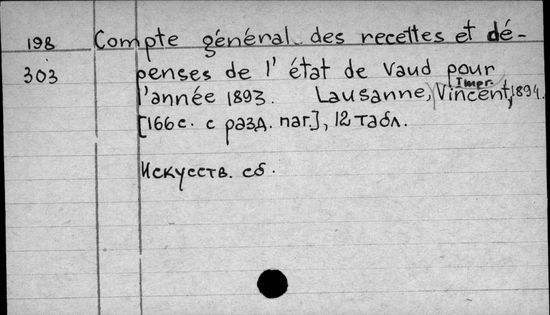 198 Compte général des recettes et dé-
303 penses de l' état de Vaud pour
l'année 1893. Lausanne, Impr. Vincent, 1894.
[166 с. с разд. паг.], 12 табл.
Искусств. сб.